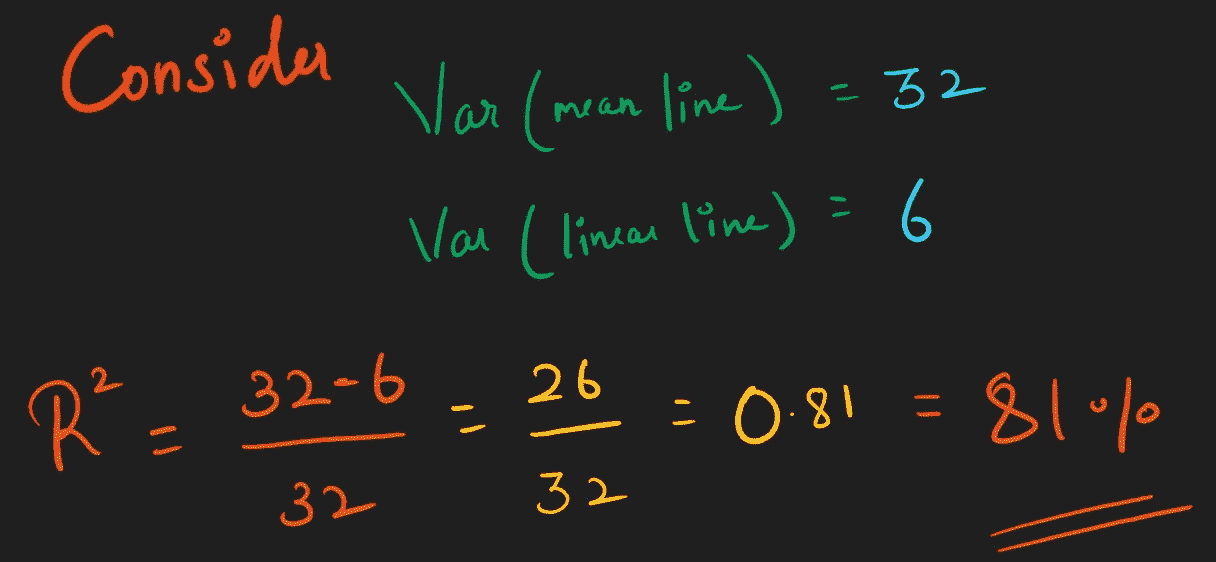 Consider
Var (mean line) = 32
Var (linear line) = 6
R² = 32-6 / 32 = 26 / 32 = 0.81 = 81%